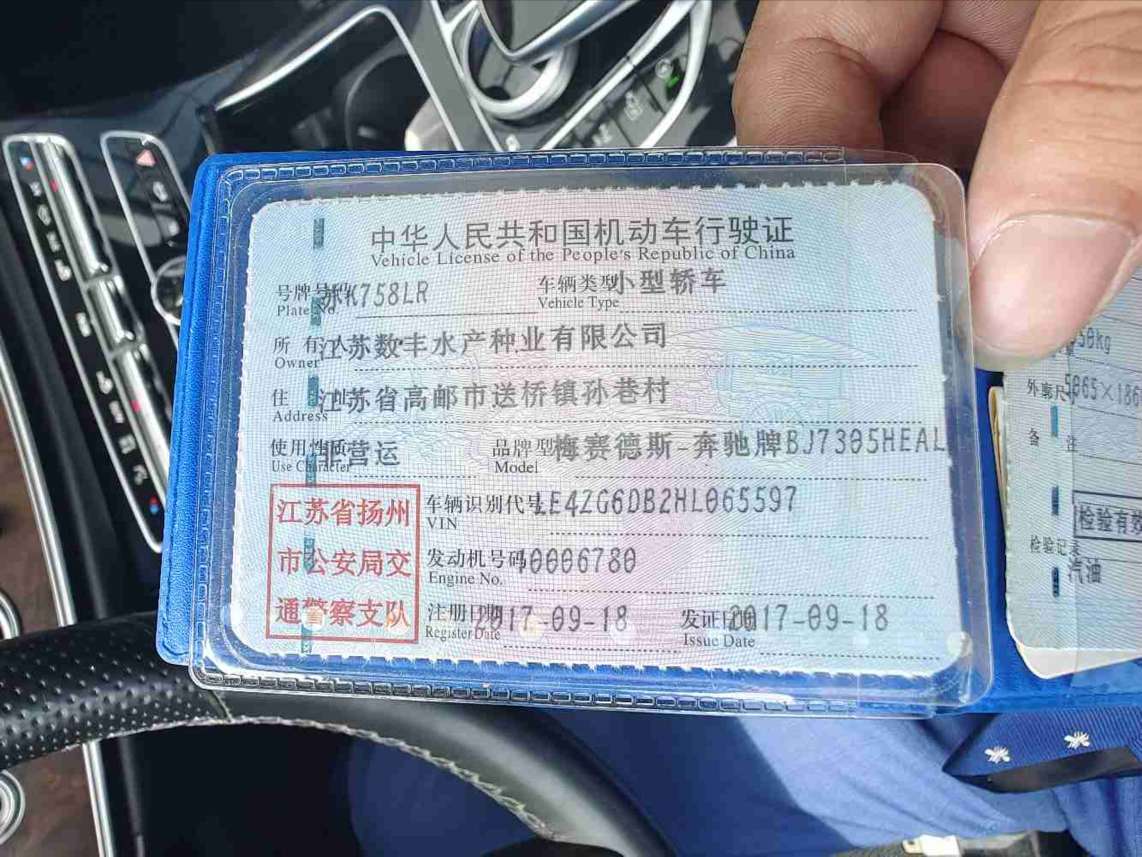 中华人民共和国机动车行驶证
Vehicle License of the People's Republic of China
号牌号码 苏K758LR 车辆类型 小型轿车
Plate No. Vehicle Type
所有人 江苏数丰水产种业有限公司
Owner
住址 江苏省高邮市送桥镇孙巷村
Address
使用性质 非营运 品牌型号 梅赛德斯-奔驰牌BJ7305HEAL
Use Character Model
江苏省扬州
市公安局交
通警察支队
车辆识别代号 LE4ZG6DB2HL065597
VIN
发动机号码 10006780
Engine No.
注册日期 2017-09-18 发证日期 2017-09-18
Register Date Issue Date
50kg
外廓尺 5065×186
备注
检验有效
检验记录
汽油